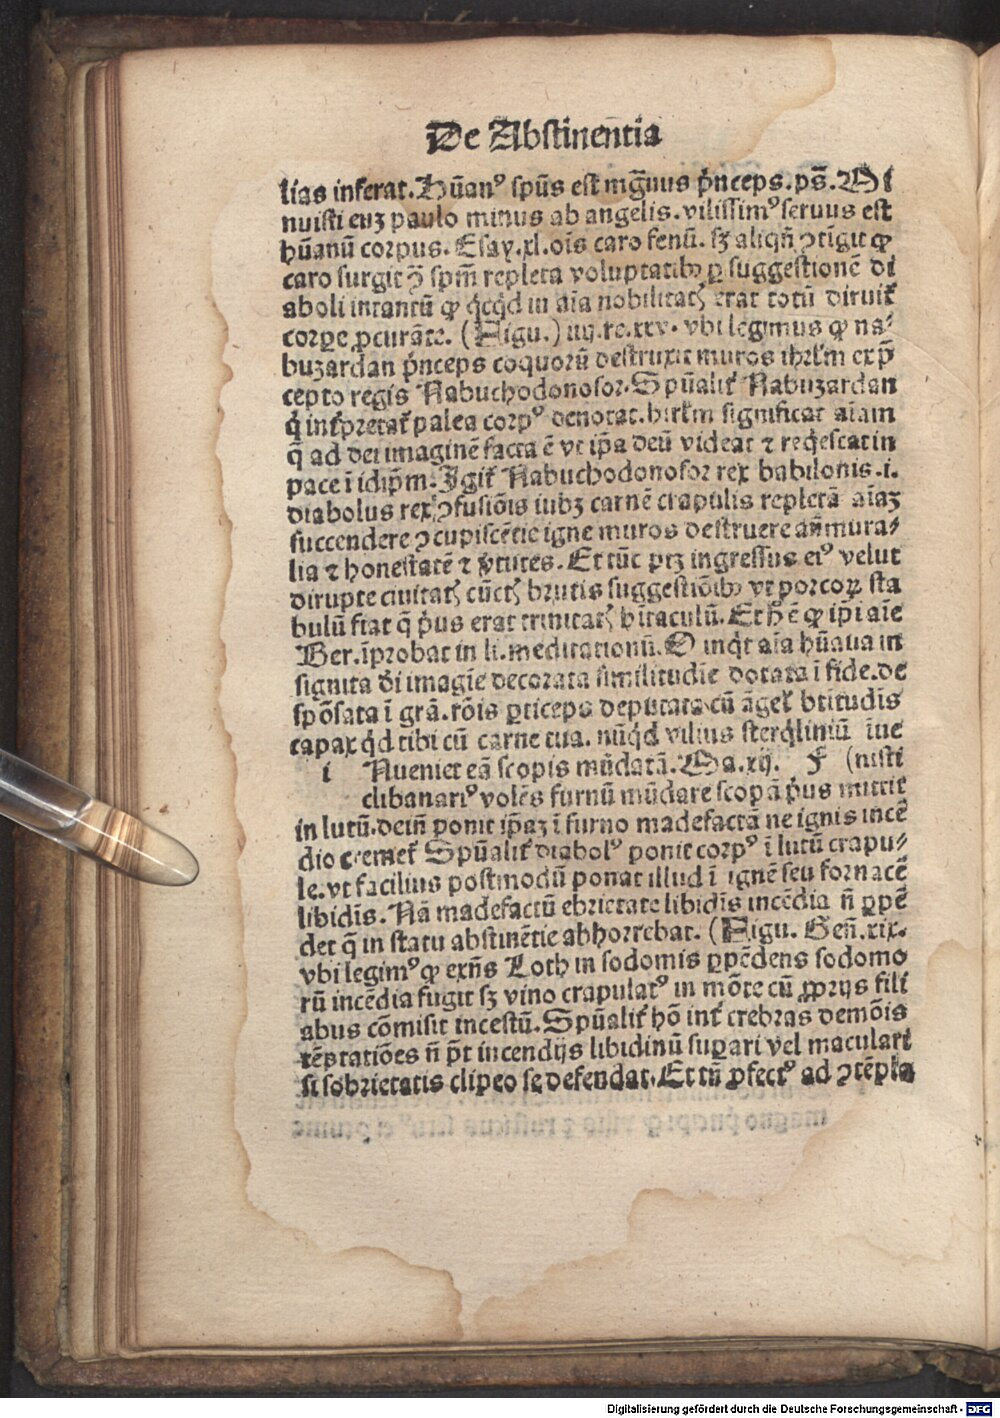 De Abstinentia
lias inferat. Hūanꝰ spūs est mgnus pͥnceps. ps̄. Mi
nuisti euʒ paulo minus ab angelis. vilissimꝰ seruus est
hūanū corpus. Esay. xl. oīs caro fenū. sʒ aliqn̄ ꝯtīgit ꝙ
caro surgit ꝯ̄ spm̄ repleta voluptatibꝫ ꝑ suggestionē di
aboli intantū ꝙ qͥcqͥd in aīa nobilitatꝭ erat totū diruit᷑
corꝑe ꝓcurāte. (Figu.) iiij. re. xxv. vbi legimus ꝙ na⸗
buzardan pͥnceps coquorū destruxit muros ihrl̄m ex p̄
cepto regis Nabuchodonosor. Spūalit᷑ Nabuzardan
qͥ int᷑pretat᷑ palea corpꝰ denotat. hirl̄m significat aīam
q̄ ad dei imaginē facta ē vt ip̄a deū videat ⁊ reqͥescat in
pace ī idip̄m. Igit᷑ Nabuchodonosor rex babilonis .i.
diabolus rex ꝯfusiōis iubꝫ carnē crapulis repletā aīaʒ
succendere ꝯcupiscētie igne muros destruere
lia ⁊ honestatē ⁊ v̓tutes. Et tūc ptꝫ ingressus eiꝰ velut
dirupte ciuitatꝭ cūctꝭ brutis suggestiōibꝫ vt porcoꝝ sta
bulū fiat q̄ pͥus erat trinitatꝭ hītaculū. Et h̄ ē ꝙ ip̄i aīe
Ber. īprobat in li. meditationū. O inqͥt aīa hūana in
signita dei imagīe decorata similitudīe dotata ī fide. de
spōsata ī grā. rōis ꝑticeps deputata cū āgel᷑ btītudīs
capax qͥd tibi cū carne tua. nūqͥd vilius sterqͥliniū īue
i Nueniet eā scopis mūdatā. Ma. xij. F (nisti
clibanariꝰ volēs furnū mūdare scopā pͥus mittit
in lutū. dein̄ ponit ip̄aʒ ī furno madefactā ne ignis incē
dio cremet᷑ Spūalit᷑ diabolꝰ ponit corpꝰ ī lutū crapu⸗
le. vt facilius postmodū ponat illud ī ignē seu fornacē
libidīs. Nā madefactū ebrietate libidīs incēdia n̄ ꝑpē
det q̄ in statu abstinētie abhorrebat. (Figu. Gen̄. xix.
vbi legimꝰ ꝙ exn̄s Loth in sodomis ꝑpēdens sodomo
rū incēdia fugit sʒ vino crapulatꝰ in mōte cū ꝓprijs fili
abus cōmisit incestū. Spūalit᷑ hō int᷑ crebras demōis
tēptatiōes n̄ pōt incendijs libidinū suꝑari vel maculari
si sobrietatis clipeo se defendat. Et tū ꝓfectꝰ ad ꝯtēpla